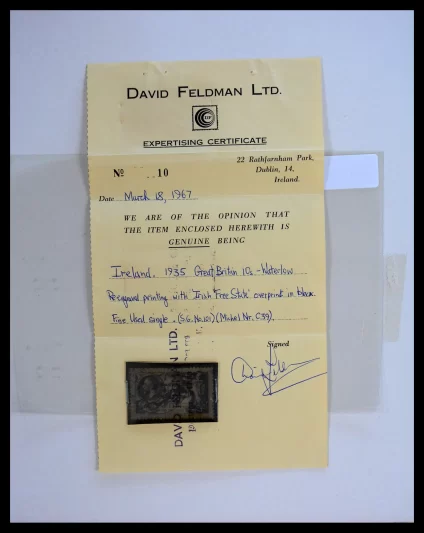 DAVID FELDMAN LTD.
EXPERTISING CERTIFICATE
22 Rathfarnham Park,
Nº 10
Dublin, 14.
Ireland.
Date March 18, 1967
WE ARE OF THE OPINION THAT
THE ITEM ENCLOSED HEREWITH IS
GENUINE BEING
Ireland. 1935 Great Britain 10s - Waterlow
Reengraved printing with 'Irish Free State' overprint in black
Fine Used single. (S.G. No. 101) (Michel Nr. C39)
Signed
DAV LTD.